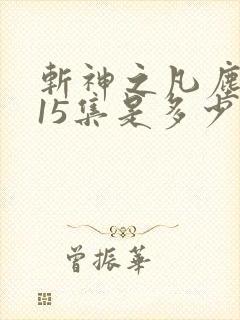 斬神之凡塵
15集是多少
曾振華